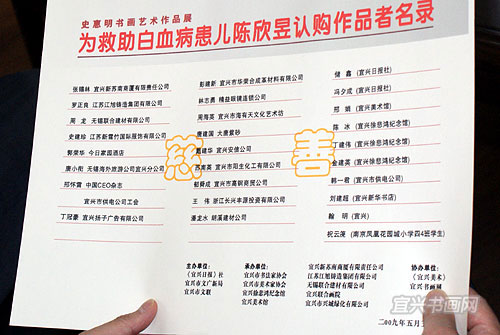 史惠明书画艺术作品展
为救助白血病患儿陈欣昱认购作品者名录
张锡林 宜兴新苏南商厦有限责任公司
罗正良 江苏江旭铸造集团有限公司
周 龙 无锡联合建材有限公司
史建珍 江苏新雪竹国际服饰有限公司
郭荣华 今日家园酒店
唐小衔 无锡海外旅游公司宜兴分公司
邢怀雷 中国CEO杂志
宜兴市供电公司工会
丁冠豪 宜兴扬子广告有限公司
彭建新 宜兴市华荣合成革材料有限公司
林志勇 精益眼镜连锁公司
周海英 宜兴市海有天文化艺术坊
唐建国 大唐紫砂
葛建华 宜兴安信公司
苏南英 宜兴市阳生化工有限公司
郁舜成 宜兴市高钏商贸公司
王 伟 浙江长兴丰源投资有限公司
潘龙水 朗溪建材公司
储 鑫 (宜兴日报社)
冯夕成 (宜兴日报社)
邢 娟 (宜兴美术馆)
陈 冰 (宜兴徐悲鸿纪念馆)
丁建伟 (宜兴徐悲鸿纪念馆)
金建英 (宜兴徐悲鸿纪念馆)
韩一君 (宜兴市供电公司)
刘建超 (宜兴新华书店)
翰 明 (宜兴)
祝云菼 (南京凤凰花园城小学四4班学生)
慈 善
主办单位:
《宜兴日报》社
宜兴市文广新局
宜兴市文联
承办单位:
宜兴市书法家协会
宜兴市美术家协会
宜兴徐悲鸿纪念馆
宜兴美术馆
宜兴新苏南商厦有限责任公司
江苏江旭铸造集团有限公司
无锡联合建材有限公司
宜兴联合画院
宜兴市兴城绿化有限公司
协办单位:
《宜兴美术》
宜兴书画网
二00九年五月
宜兴书画网